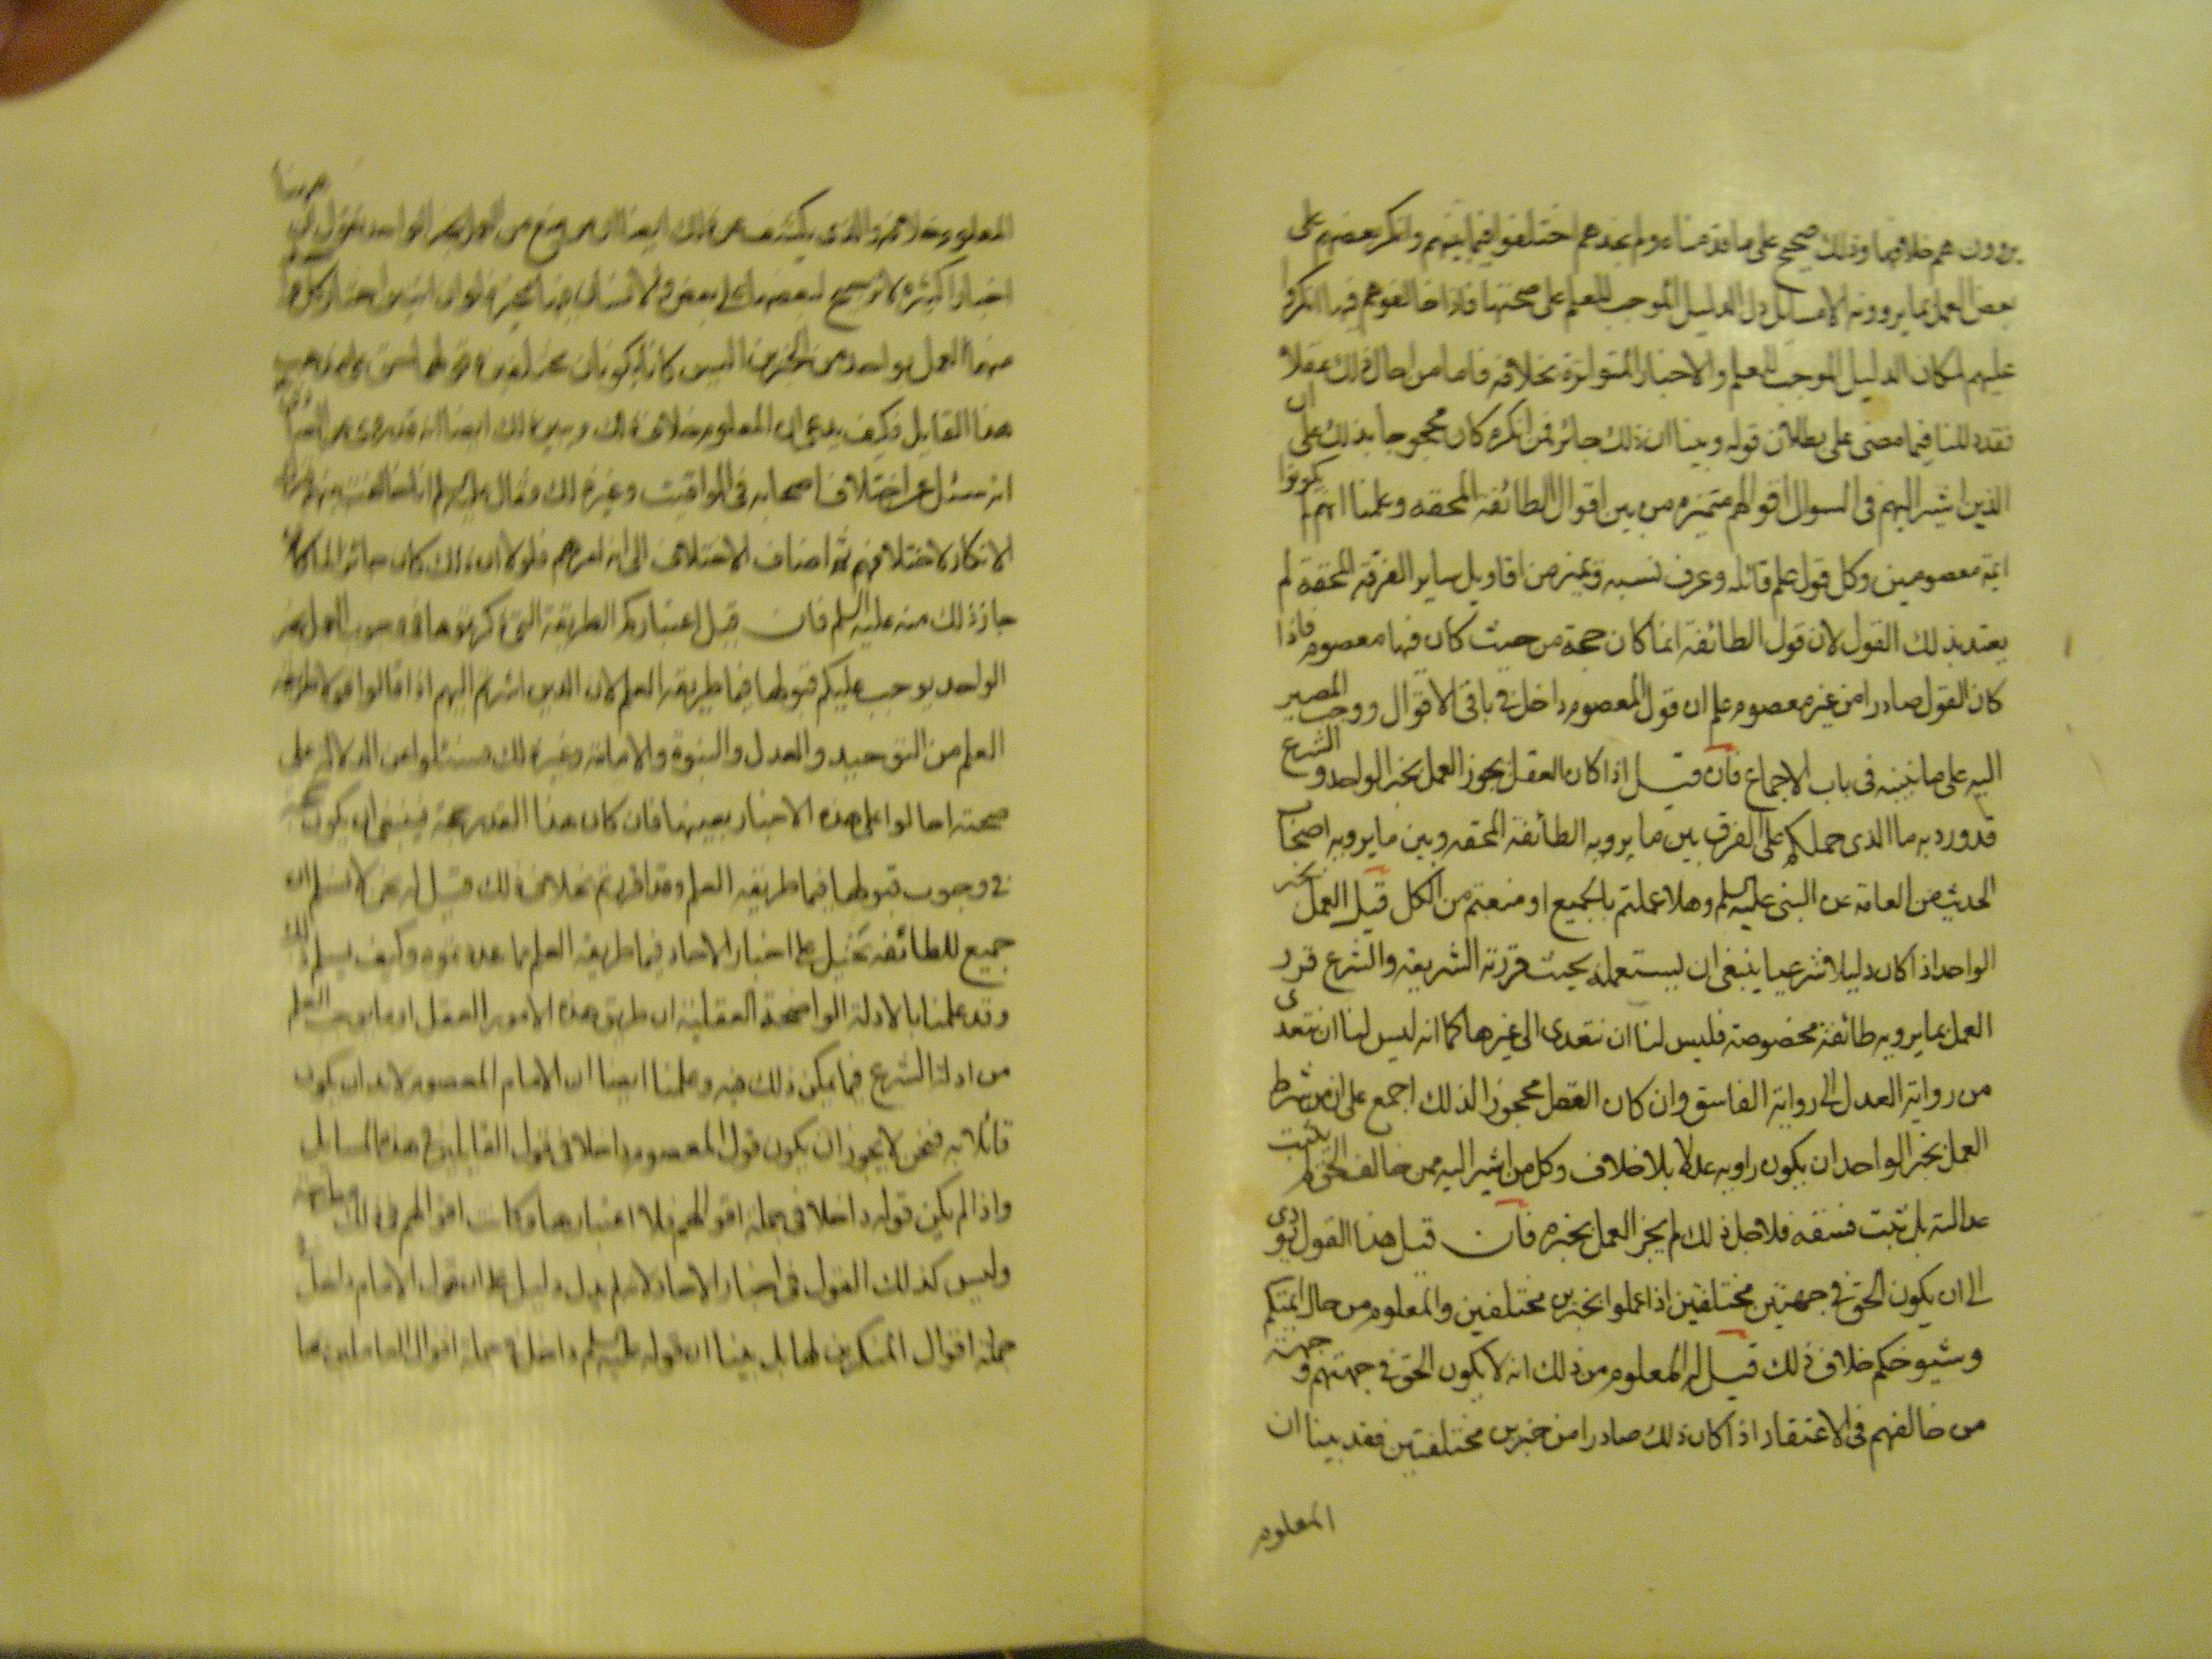 يروون عنهم خلافها وذلك صحيح على ما قدمناه ولم نجدهم اختلفوا فيما بينهم وانكر بعضهم على
بعض العمل بما يروونه الا مسائل دل الدليل الموجب للعلم على صحتها فاذا خالفوهم فيها انكروا
عليهم لمكان الدليل الموجب للعلم والاخبار المتواترة بخلافه فاما من احال ذلك عقلا
فقد دللنا فيما مضى على بطلان قوله وبينا ان ذلك جائز فمن انكره كان محجوجا بذلك على ان
الذين اشير اليهم في السوال اقوالهم متميزه من بين اقوال الطائفة المحقه وعلمنا انهم لم يكونوا
ائمة معصومين وكل قول علم قائله وعرف نسبه وتميز من اقاويل ساير الفرقة المحقة لم
يعتد بذلك القول لان قول الطائفة انما كان حجة من حيث كان فيها معصوم فاذا
كان القول صادرا من غير معصوم علم ان قول المعصوم داخل في باقي الاقوال ووجب المصير
اليه على ما نبينه في باب الاجماع فان قيل اذا كان العقل يجوز العمل بخبر الواحد والشرع
قد ورد به ما الذي حملكم على الفرق بين ما يرويه الطائفة المحقه وبين ما يرويه اصحاب
الحديث من العامة عن النبي عليه السلم وهلا عملتم بالجميع او منعتم من الكل قيل العمل بخبر
الواحد اذا كان دليلا شرعيا ينبغي ان نستعمله بحيث قررته الشريعه والشرع قرر
العمل بما يرويه طائفة مخصوصة فليس لنا ان نتعدى الى غيرها كما انه ليس لنا ان نتعدى
من رواية العدل الى رواية الفاسق وان كان العقل مجوزا لذلك اجمع على ان من شرط
العمل بخبر الواحد ان يكون راويه عدلا بلا خلاف وكل من اشير اليه ممن خالف الحق لم يثبت
عدالته بل ثبت فسقه فلاجل ذلك لم يجز العمل بخبره فان قيل هذا القول يودى
الى ان يكون الحق في جهتين مختلفتين اذا عملوا بخبرين مختلفين والمعلوم من حال ائمتكم
وشيوخكم خلاف ذلك قيل له المعلوم من ذلك انه لا يكون الحق في جهتهم وجهة
من خالفهم في الاعتقاد اذا كان ذلك صادرا من خبرين مختلفتين فقد بينا ان
المعلوم
المعلوم خلافه والذى يكشف عن ذلك ايضا ان من منع من العمل بخبر الواحد يقول ان هيهنا
اخبارا كثيرة لا ترجيح لبعضها على بعض والانسان فيها مخير فلو ان اثنين اختار كل واحد
منهما العمل بواحد من الخبرين اليس كانا يكونان مختلفين وقولهما حق على مذهب
هذا القايل فكيف يدعى ان المعلوم خلاف ذلك ويبين ذلك ايضا انه قد روى عن الصادق
انه سئل عن اختلاف اصحابه في المواقيت وغير ذلك فقال عليه السلم انا خالفت بينهم فترك
الانكار لاختلافهم ثم اضاف الاختلاف الى انه امرهم فلولا ان ذلك كان جائزا لما كان
جاز ذلك منه عليه السلم فان قيل اعتباركم الطريقة التي ذكرتموها في وجوب العمل بخبر
الواحد يوجب عليكم قبولها فيما طريقه العلم لان الذين اشرتم اليهم اذا قالوا قولا طريقه
العلم من التوحيد والعدل والنبوة والامامة وغير ذلك فسئلوا عن الدلالة على
صحته احالوا على هذه الاخبار بعينها فان كان هذا القدر حجة فينبغى ان يكون حجة
في وجوب قبولها فيما طريقه العلم وقد اقررتم بخلاف ذلك قيل له نحن لا نسلم ان
جميع الطائفه تحيل على اخبار الاحاد فيما طريقه العلم مما عددتموه وكيف نسلم ذلك
وقد علمنا بالادلة الواضحة العقلية ان طريق هذه الامور العقل او ما يوجب العلم
من ادلة الشرع فيما يمكن ذلك فيه وعلمنا ايضا ان الامام المعصوم لابد ان يكون
قائلا به فنحن لا نجوز ان يكون قول المعصوم داخلا في قول القايلين في هذه المسايل
واذا لم يكن قوله داخلا في جملة اقوالهم فلا اعتبار بها وكانت اقوالهم في ذلك مطرحة
وليس كذلك القول في اخبار الاحاد لانه لم يدل دليل على ان قول الامام داخل في
جملة اقوال المنكرين لها بل بينا ان قوله عليه السلم داخل في جملة اقوال العاملين بها